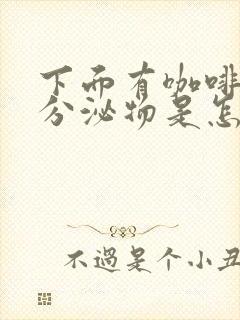 下面有咖啡
分泌物是怎
不過是个小丑